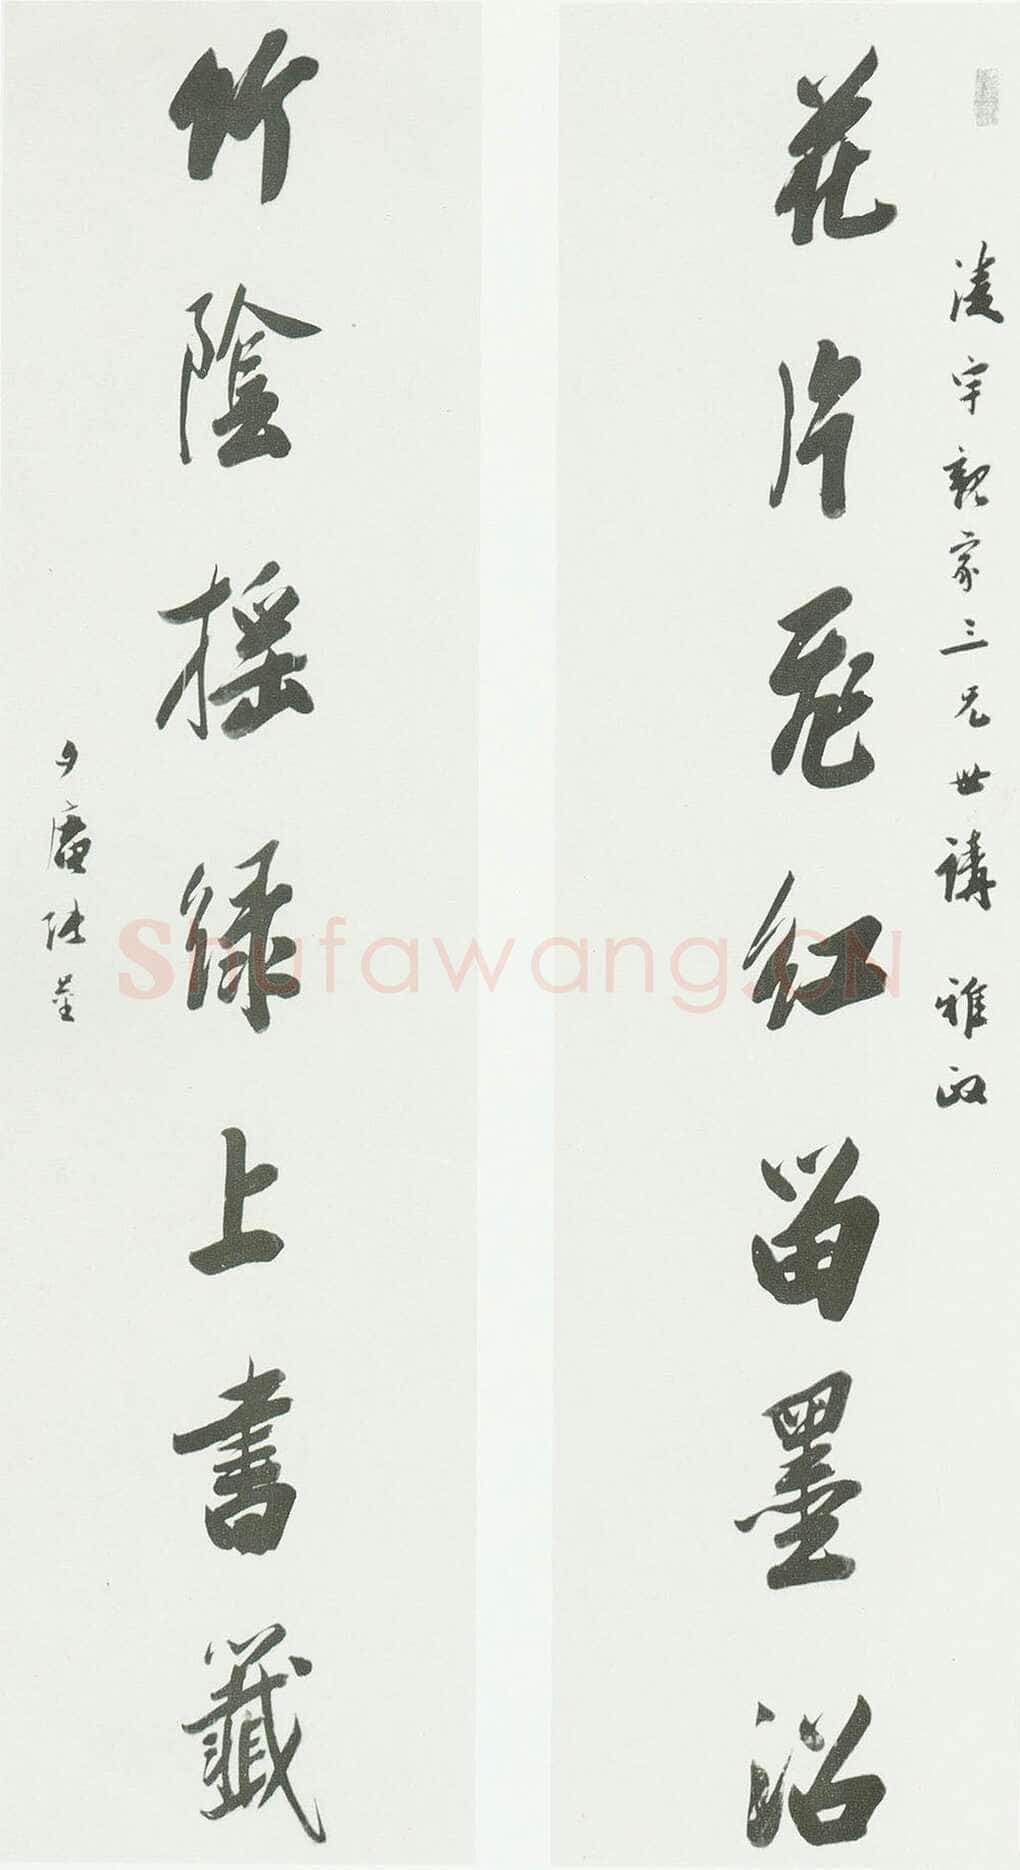 淩宇親家三兄世講 雅政
花片飛紅留墨沼
竹陰摇緑上書籤
夕庵張崟
Shufawang.CN